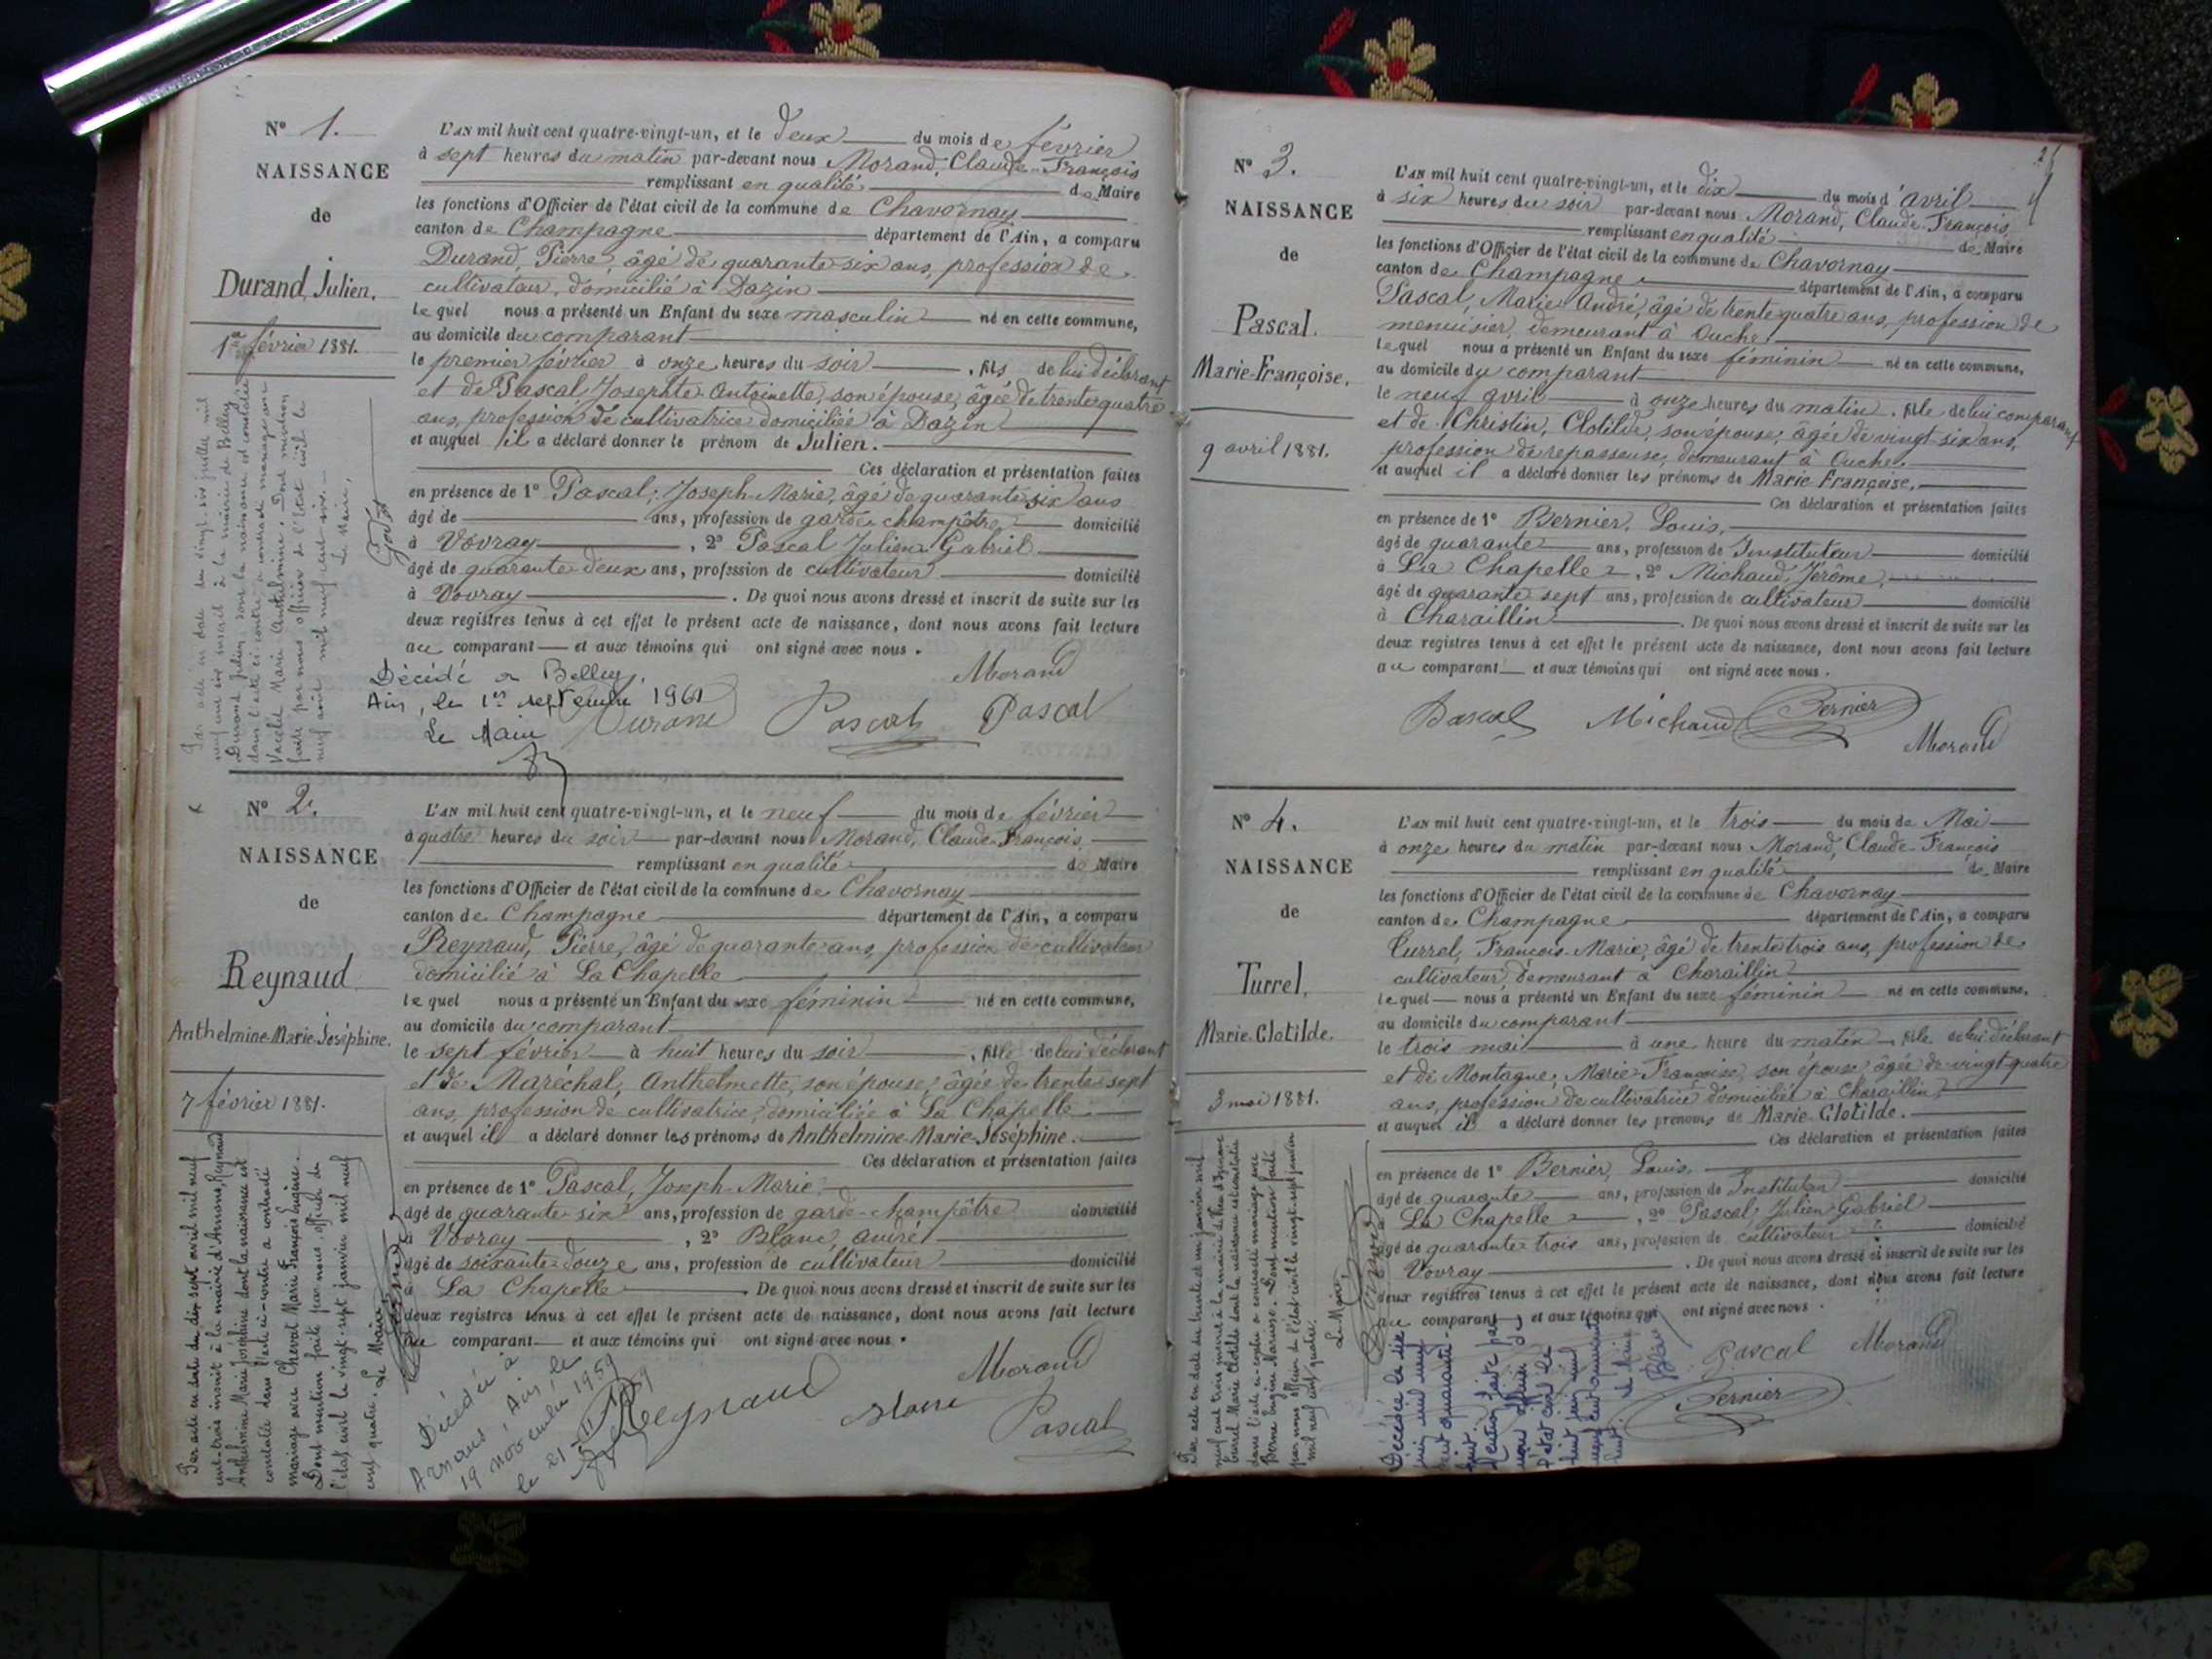 N° 1.
NAISSANCE
de
Durand, Julien.
1er février 1881.
L'AN mil huit cent quatre-vingt-un, et le deux du mois de février
à sept heures du matin par-devant nous Morand, Claude-François
remplissant en qualité de Maire
les fonctions d'Officier de l'état civil de la commune de Chavornay
canton de Champagne département de l'Ain, a comparu
Durand, Pierre, âgé de quarante-six ans, profession de
cultivateur, domicilié à Dazin
lequel nous a présenté un Enfant du sexe masculin né en cette commune,
au domicile du comparant
le premier février à onze heures du soir, fils de lui déclarant
et de Pascal, Josephte Antoinette, son épouse, âgée de trente quatre
ans, profession de cultivatrice domiciliée à Dazin
et auquel il a déclaré donner le prénom de Julien.
Ces déclaration et présentation faites
en présence de 1° Pascal, Joseph-Marie, âgé de quarante six ans
âgé de ans, profession de garde-champêtre domicilié
à Vovray, 2° Pascal Julien Gabriel
âgé de quarante-deux ans, profession de cultivateur domicilié
à Vovray. De quoi nous avons dressé et inscrit de suite sur les
deux registres tenus à cet effet le présent acte de naissance, dont nous avons fait lecture
au comparant et aux témoins qui ont signé avec nous.
Décédé à Belley,
Ain, le 1er septembre 1961
Le Maire
Morand
Durand Pascal Pascal
Par acte en date du vingt-six juillet mil
neuf cent six inscrit à la mairie de Belley
Durand Julien dont la naissance est constatée
dans l'acte ci-contre a contracté mariage avec
Marie Anthelmine. Dont mention
faite par nous officier de l'état civil le
Le Maire,
N° 2.
NAISSANCE
de
Reynaud
Anthelmine-Marie-Joséphine.
7 février 1881.
L'AN mil huit cent quatre-vingt-un, et le neuf du mois de février
à quatre heures du soir par-devant nous Morand, Claude-François
remplissant en qualité de Maire
les fonctions d'Officier de l'état civil de la commune de Chavornay
canton de Champagne département de l'Ain, a comparu
Reynaud, Pierre, âgé de quarante ans, profession de cultivateur
domicilié à La Chapelle
lequel nous a présenté un Enfant du sexe féminin né en cette commune,
au domicile du comparant
le sept février à huit heures du soir, fille de lui déclarant
et de Maréchal, Anthelmette, son épouse, âgée de trente-sept
ans, profession de cultivatrice, domiciliée à La Chapelle
et auquel il a déclaré donner les prénoms de Anthelmine-Marie-Joséphine.
Ces déclaration et présentation faites
en présence de 1° Pascal, Joseph-Marie
âgé de quarante-six ans, profession de garde-champêtre domicilié
à Vovray, 2° Blanc, André
âgé de soixante-douze ans, profession de cultivateur domicilié
à La Chapelle. De quoi nous avons dressé et inscrit de suite sur les
deux registres tenus à cet effet le présent acte de naissance, dont nous avons fait lecture
au comparant et aux témoins qui ont signé avec nous.
Par acte en date du dix sept avril mil neuf
cent-trois inscrit à la mairie d'Arnans, Reynaud
Anthelmine Marie Joséphine dont la naissance est
constatée dans l'acte ci-contre a contracté
mariage avec Cheval Marie François Eugène.
Dont mention faite par nous, officier de
l'état civil le vingt-sept janvier mil neuf
cent quatre. Le Maire,
Décédée à
Arnans, Ain, le
19 novembre 1959
le 21-11-59
Reynaud Morand
Pascal
N° 3.
NAISSANCE
de
Pascal.
Marie-Françoise.
9 avril 1881.
L'AN mil huit cent quatre-vingt-un, et le dix du mois d'avril
à six heures du soir par-devant nous Morand, Claude-François,
remplissant en qualité de Maire
les fonctions d'Officier de l'état civil de la commune de Chavornay
canton de Champagne département de l'Ain, a comparu
Pascal, Marie-André, âgé de trente quatre ans, profession de
menuisier, demeurant à Ouche.
lequel nous a présenté un Enfant du sexe féminin né en cette commune,
au domicile du comparant
le neuf avril à onze heures du matin, fille de lui comparant
et de Christin, Clotilde, son épouse, âgée de vingt-six ans,
profession de repasseuse, demeurant à Ouche.
et auquel il a déclaré donner les prénoms de Marie Françoise.
Ces déclaration et présentation faites
en présence de 1° Bernier, Louis,
âgé de quarante ans, profession de Instituteur domicilié
à La Chapelle, 2° Michaud, Jérôme,
âgé de quarante sept ans, profession de cultivateur domicilié
à Charaillin. De quoi nous avons dressé et inscrit de suite sur les
deux registres tenus à cet effet le présent acte de naissance, dont nous avons fait lecture
au comparant et aux témoins qui ont signé avec nous.
Pascal Michaud Bernier
Morand
N° 4.
NAISSANCE
de
Turrel,
Marie-Clotilde.
3 mai 1881.
L'AN mil huit cent quatre-vingt-un, et le trois du mois de Mai
à onze heures du matin par-devant nous Morand, Claude-François
remplissant en qualité de Maire
les fonctions d'Officier de l'état civil de la commune de Chavornay
canton de Champagne département de l'Ain, a comparu
Turrel, François-Marie, âgé de trente trois ans, profession de
cultivateur, demeurant à Charaillin
lequel nous a présenté un Enfant du sexe féminin né en cette commune,
au domicile du comparant
le trois mai à une heure du matin, fille de lui déclarant
et de Montagne, Marie-Françoise, son épouse, âgée de vingt-quatre
ans, profession de cultivatrice domiciliée à Charaillin
et auquel il a déclaré donner les prénoms de Marie-Clotilde.
Ces déclaration et présentation faites
en présence de 1° Bernier, Louis
âgé de quarante ans, profession de Instituteur domicilié
La Chapelle, 2° Pascal, Julien-Gabriel
âgé de quarante-trois ans, profession de cultivateur domicilié
Vovray. De quoi nous avons dressé et inscrit de suite sur les
deux registres tenus à cet effet le présent acte de naissance, dont nous avons fait lecture
au comparant et aux témoins qui ont signé avec nous.
Pascal Morand
Bernier
Par acte en date du trente et un janvier mil
neuf cent trois inscrit à la mairie de
Turrel Marie Clotilde dont la naissance est constatée
dans l'acte ci-contre a contracté mariage avec
Eugène. Dont mention faite
par nous officier de l'état civil le vingt-sept janvier
mil neuf cent quatre.
Le Maire,
Décédée le
juin mil neuf
cent quarante-
huit
Mention faite par
nous officier de
l'état civil le
huit juin mil
neuf cent quarante
huit
Le Maire